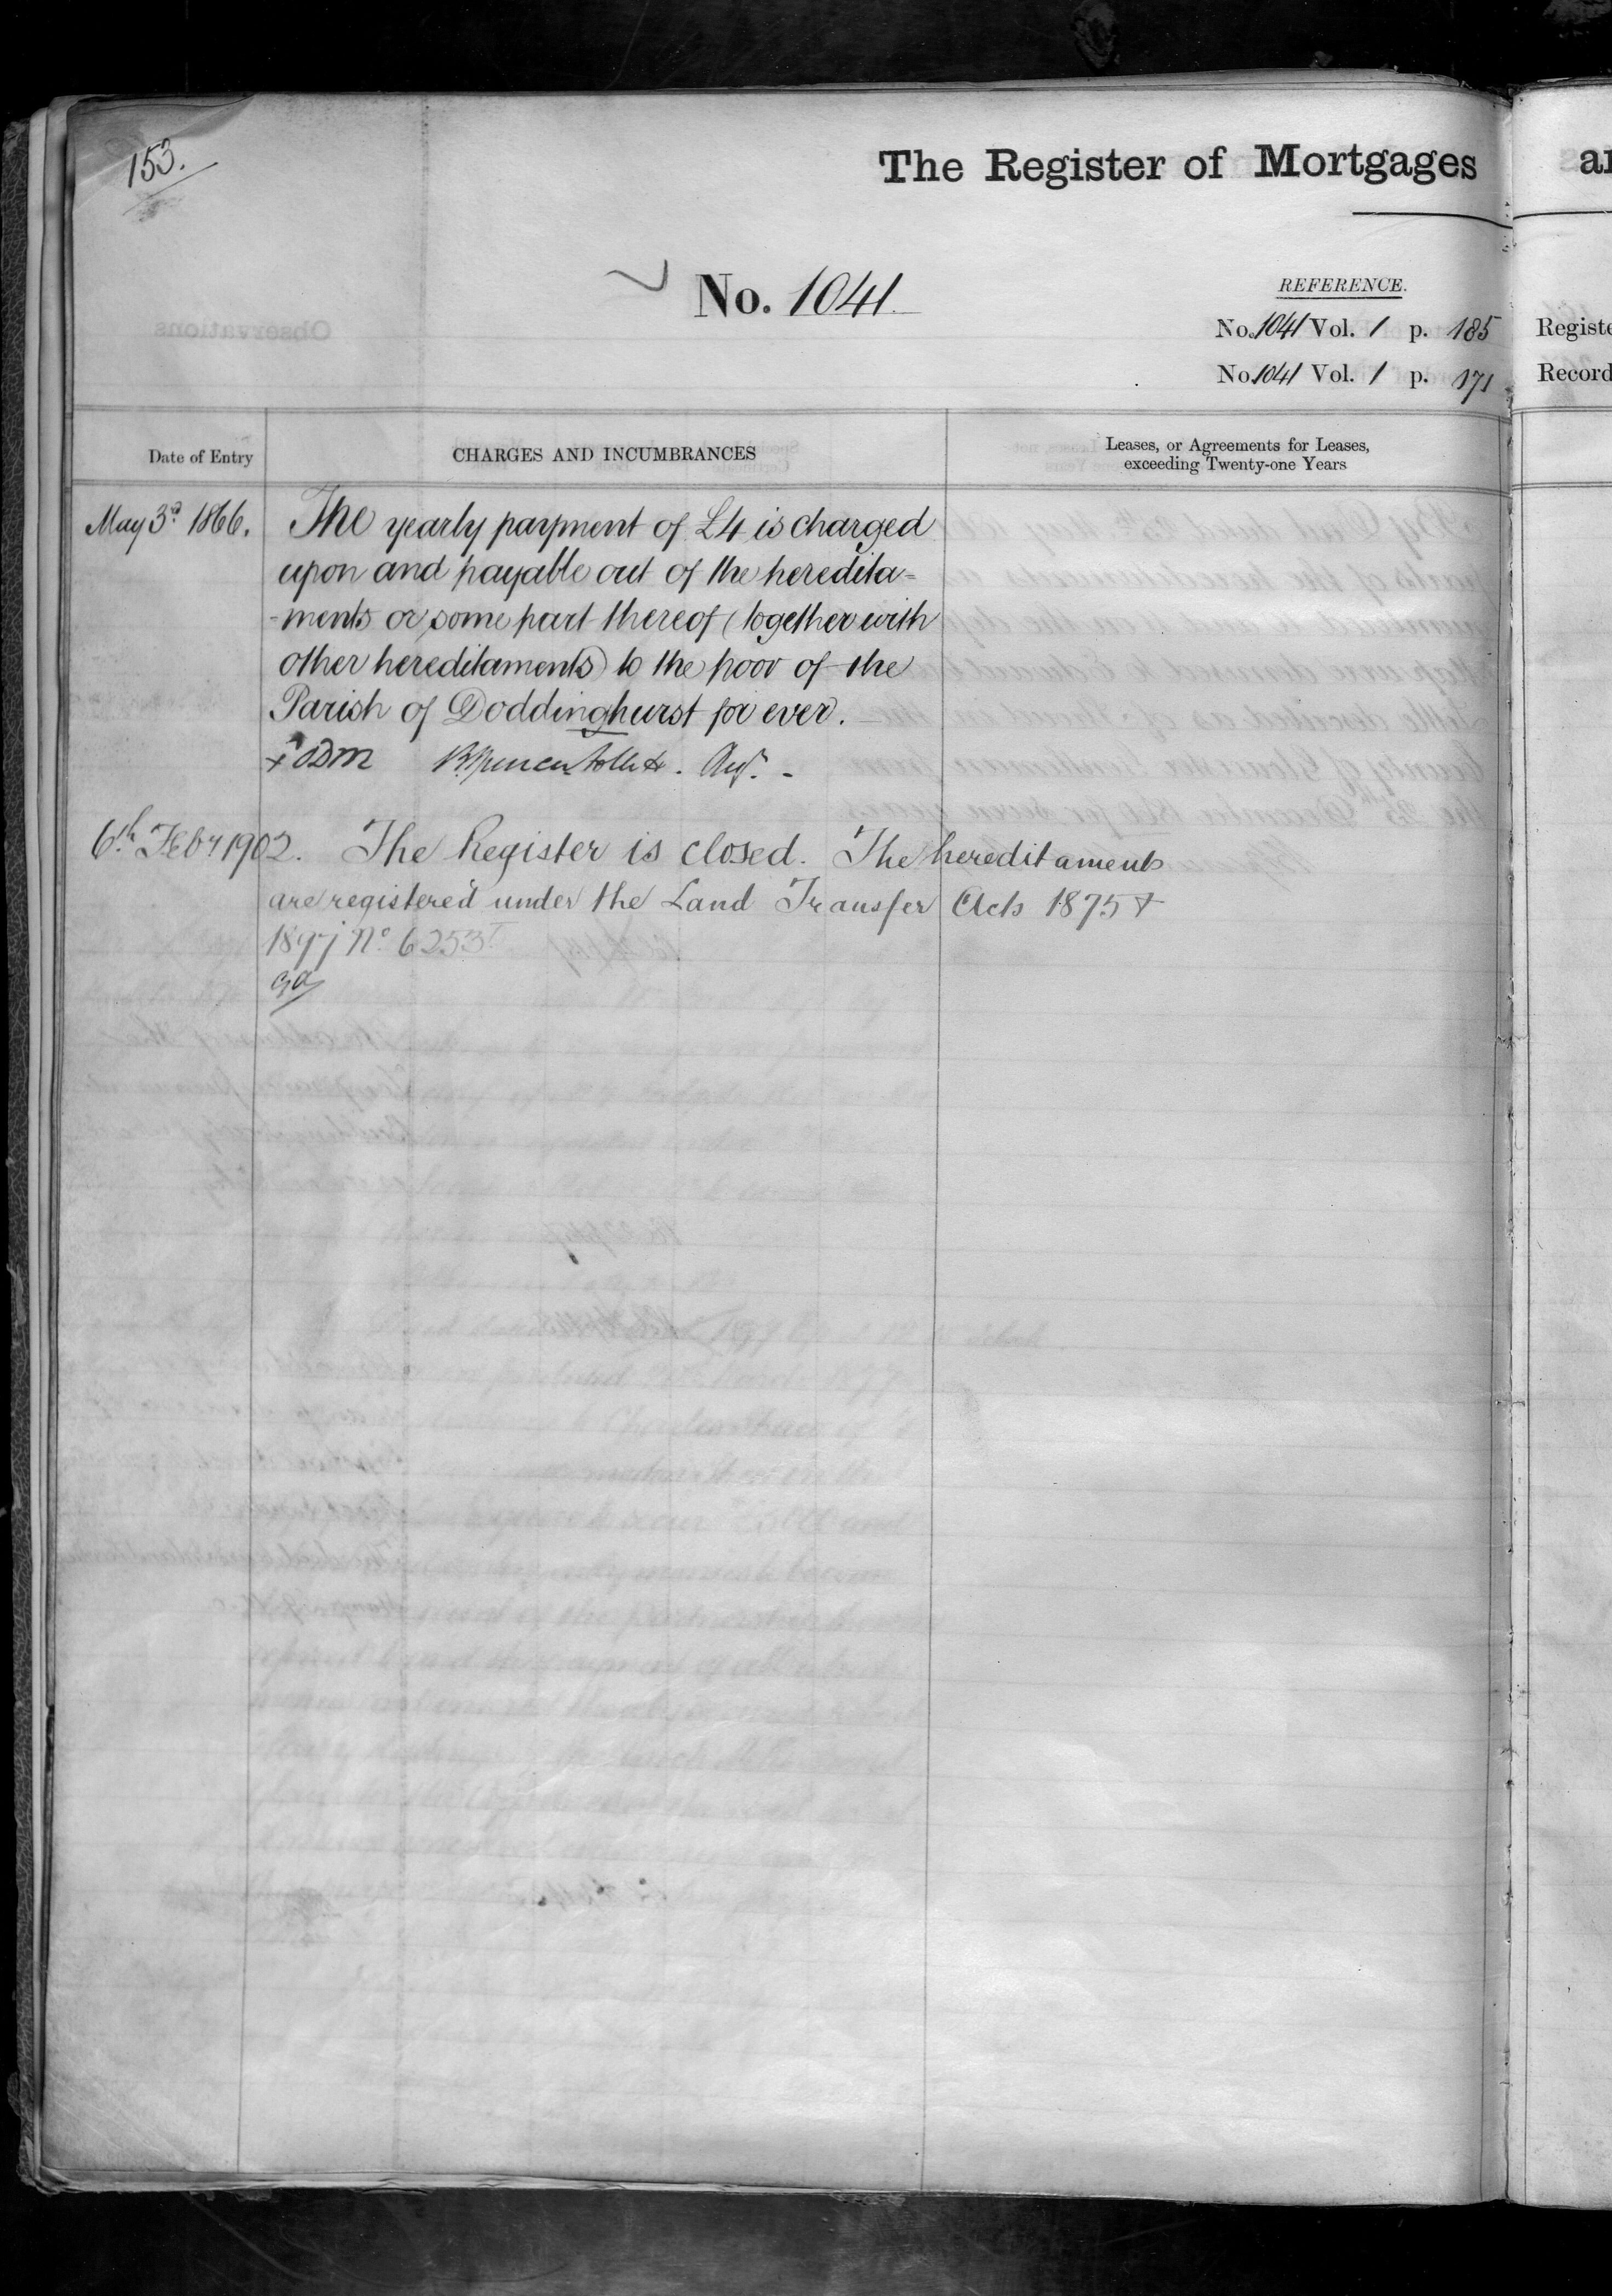 153.
The Register of Mortgages
No. 1041
REFERENCE.
No. 1041 Vol. 1 p. 185
No 1041 Vol. 1 p. 171
Registe
Record
Date of Entry
CHARGES AND INCUMBRANCES
Leases, or Agreements for Leases,
exceeding Twenty-one Years
May 3d 1866. The yearly payment of £4 is charged
upon and payable out of the heredita=
-ments or some part thereof (together with
other hereditaments) to the poor of the
Parish of Doddinghurst for ever.
6th Feby 1902. The Register is closed. The hereditaments
are registered under the Land Transfer Acts 1875 &
1897 No 6253